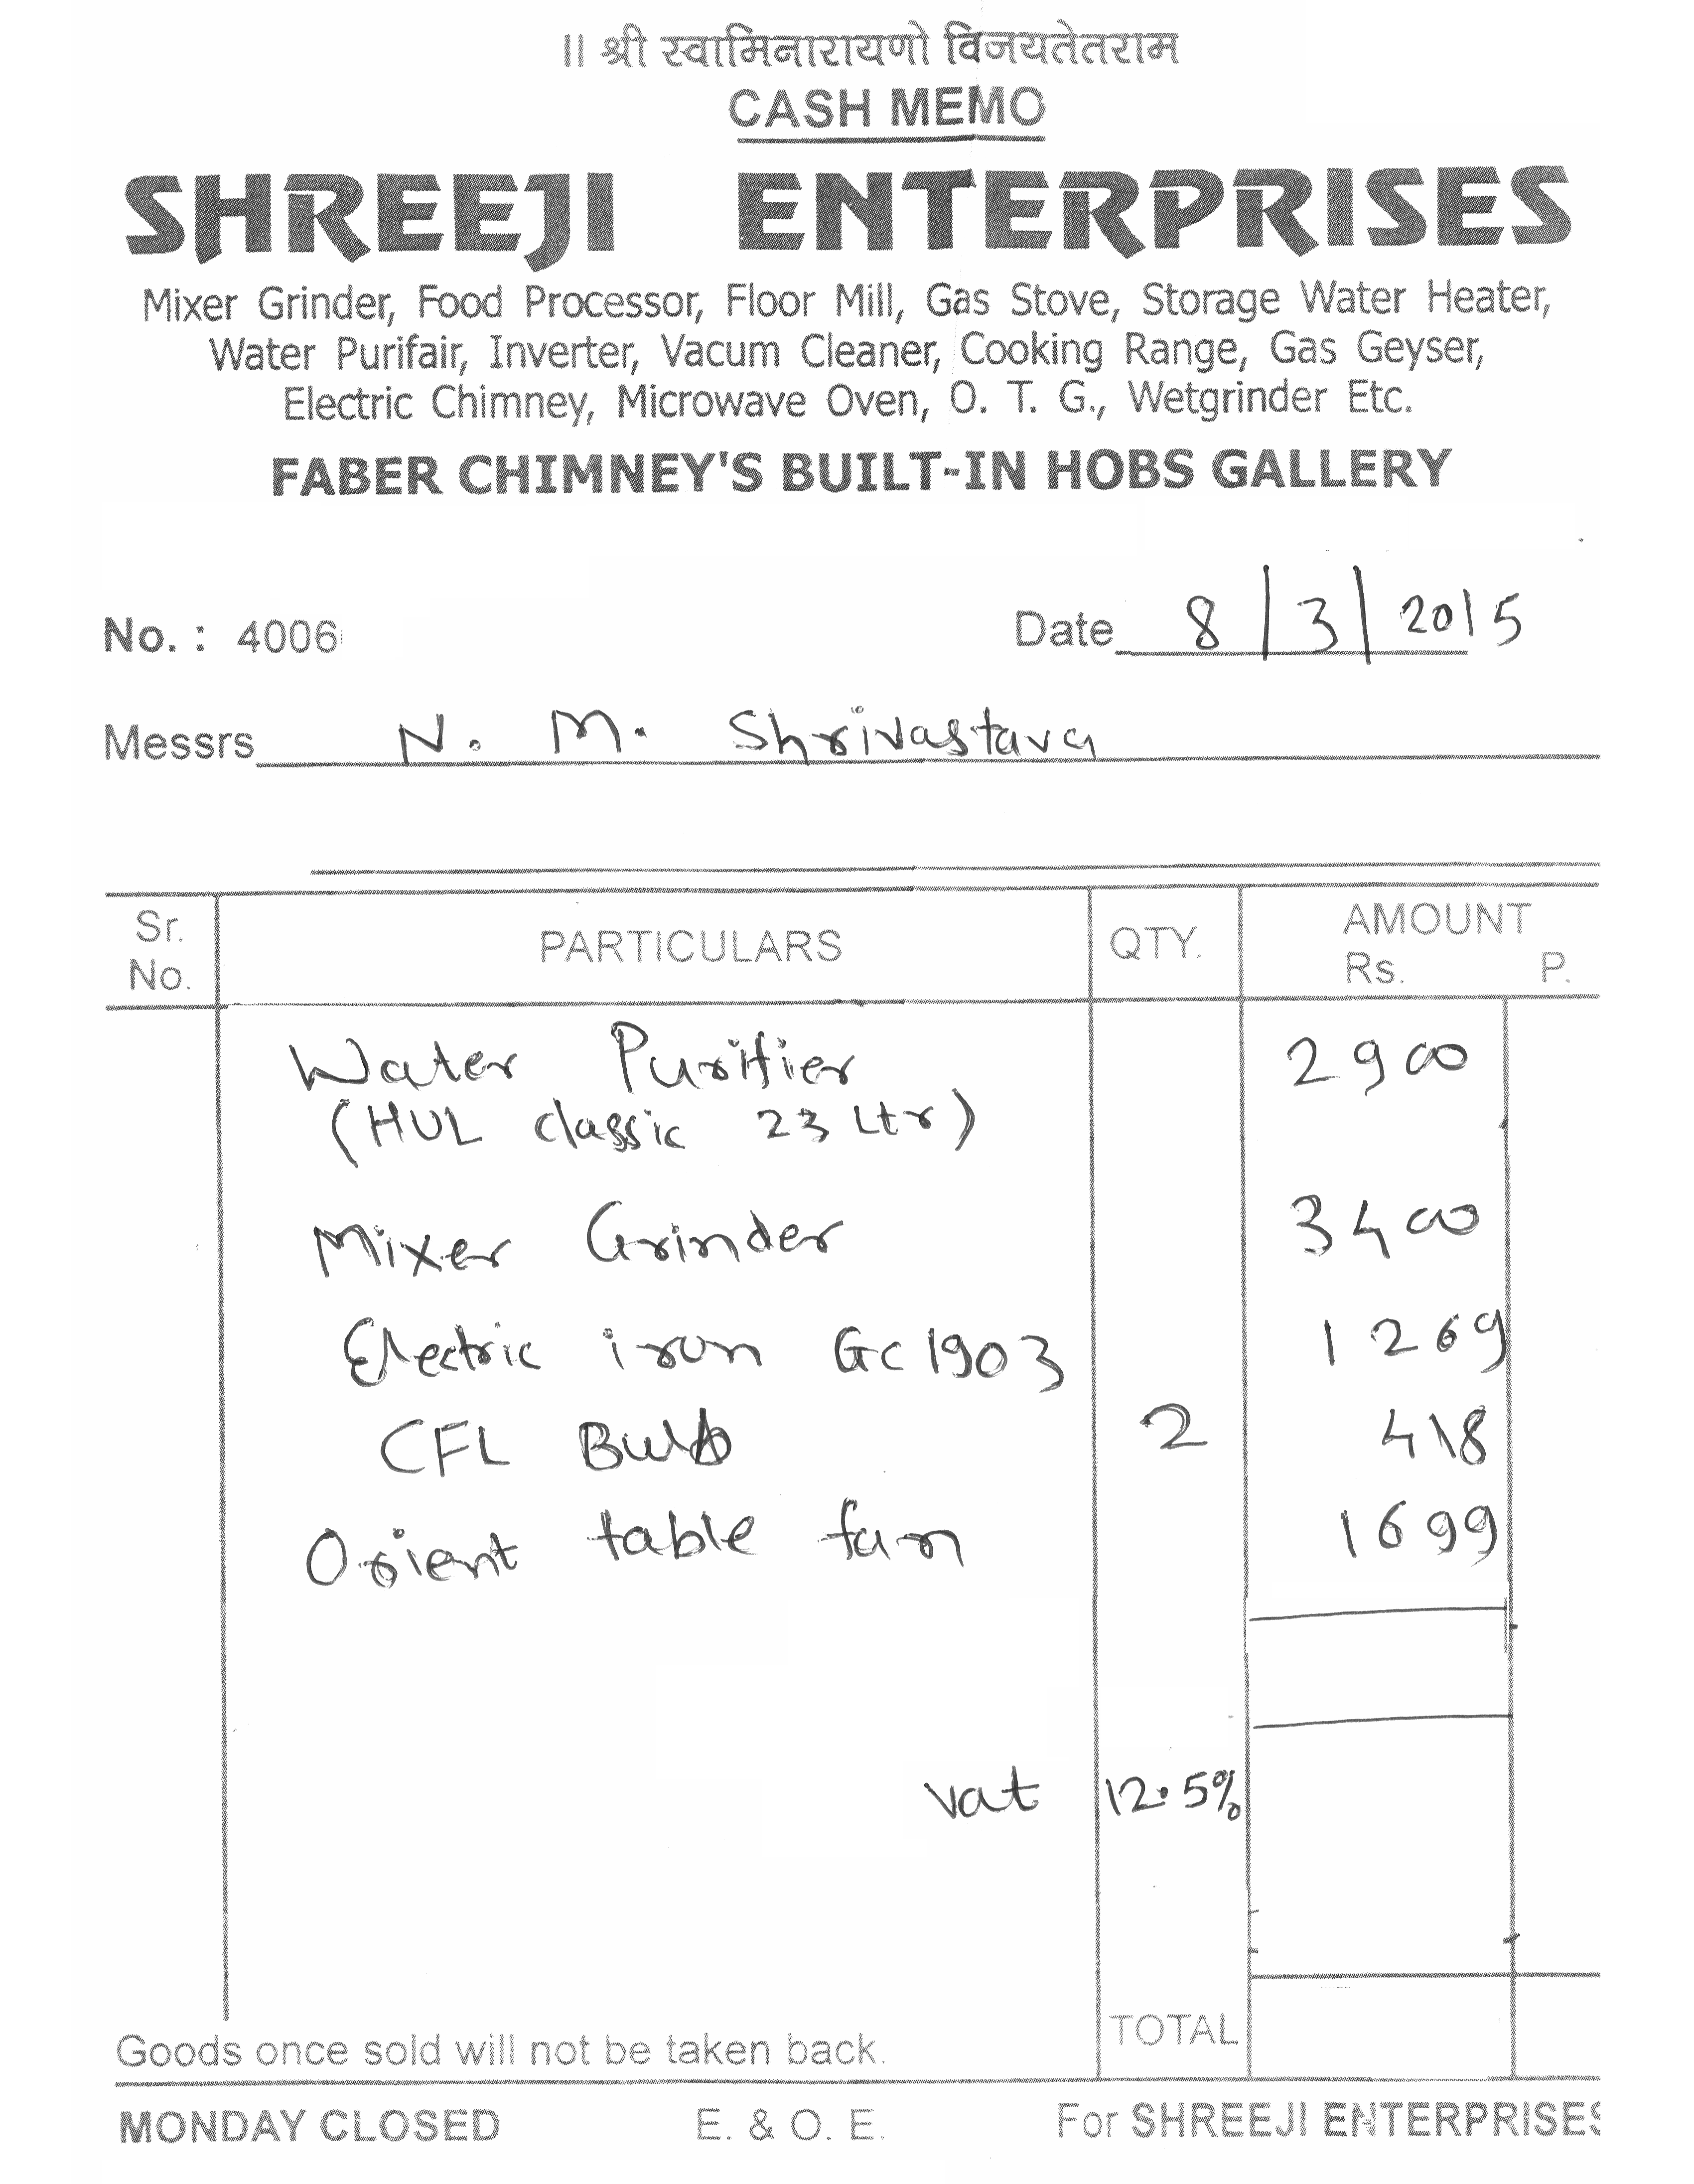 ॥ श्री स्वामिनारायणो विजयतेतराम
CASH MEMO
SHREEJI ENTERPRISES
Mixer Grinder, Food Processor, Floor Mill, Gas Stove, Storage Water Heater,
Water Purifair, Inverter, Vacum Cleaner, Cooking Range, Gas Geyser,
Electric Chimney, Microwave Oven, O. T. G., Wetgrinder Etc.
FABER CHIMNEY'S BUILT-IN HOBS GALLERY
No. : 4006 Date 8/3/2015
Messrs N. M. Shrivastava
Sr. No. PARTICULARS QTY. AMOUNT Rs. P.
Water Purifier 2900
(HUL classic 23 Ltr)
Mixer Grinder 3400
Electric iron GC1903 1269
CFL Bulb 2 418
Orient table fan 1699
vat 12.5%
Goods once sold will not be taken back. TOTAL
MONDAY CLOSED E. & O. E. For SHREEJI ENTERPRISES